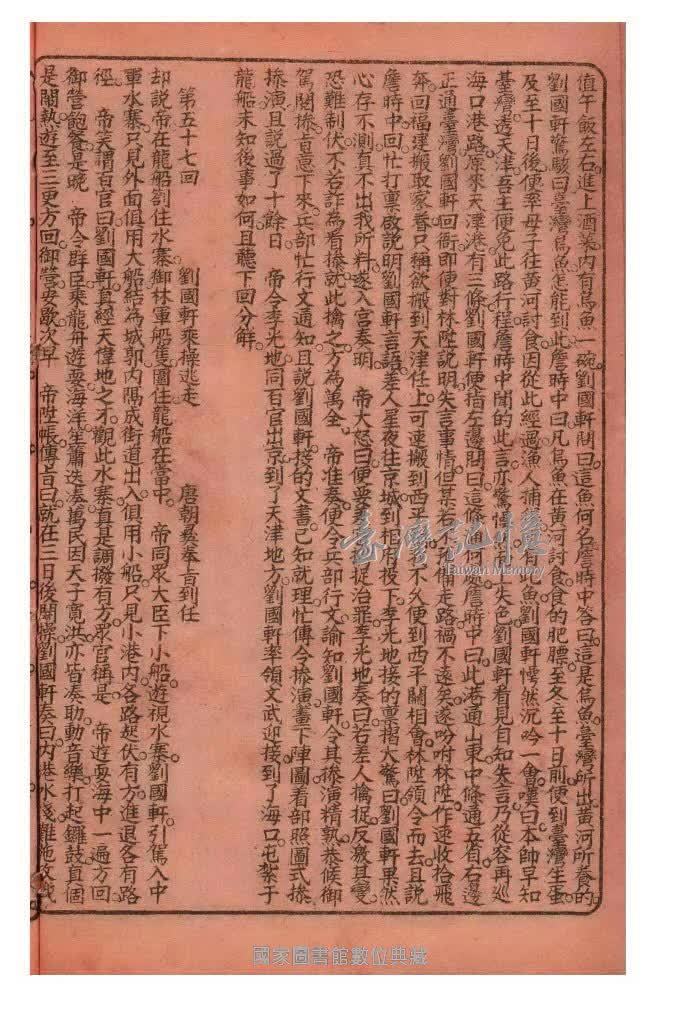 值午飯左右進上酒菜內有烏魚一碗劉國軒問曰這魚何名詹時中答曰這是烏魚臺灣所出黃河所養的
劉國軒驚駭曰臺灣烏魚怎能到此詹時中曰凡烏魚在黃河討食食的肥膘至冬至十日前便到臺灣生蛋
及至十日後便率母子往黃河討食因從此經過漁人捕 此魚劉國軒愕然沉吟一會嘆曰本帥早知
臺灣透天津吾主便免此路行程詹時中聞的此言亦驚 失色劉國軒看見自知失言乃從容再巡
海口港路原來天津港有三條劉國軒便指左邊問曰這條 何處詹時中曰此港通山東中條通五省右邊
正通臺灣劉國軒回衙即便對林陞說明失言事情但某若不 備走路禍不遠矣遂吩咐林陞作速收拾飛
奔回福建搬取家眷只稱欲搬到天津任上可速搬到西平 不久便到西平關相會林陞領令而去且說
詹時中回忙打稟啟說明劉國軒言語差人星夜往京城到相府投下李光地接的稟摺大驚曰劉國軒果然
心存不測真不出我所料遂入宮奏明 帝大怒曰便要 捉治罪李光地奏曰若差人擒捉反激其變
恐難制伏不若詐為看操就此擒之方為萬全 帝准奏便令兵部行文諭知劉國軒令其操演精熟恭候御
駕閱操旨意下來兵部忙行文通知且說劉國軒接的文書已知就理忙傳令操演畫下陣圖着部照圖式操
操演且說過了十餘日 帝令李光地同百官出京到了天津地方劉國軒率領文武迎接到了海口屯紮于
龍船未知後事如何且聽下回分解
第五十七回 劉國軒乘操逃走 唐朝彝奉旨到任
却說帝在龍船劄住水寨御林軍船隻圍住龍船在當中 帝同眾大臣下小船遊視水寨劉國軒引駕入中
軍水寨只見外面俱用大船結為城郭內隔成街道出入俱用小船只見小港內各路起伏有方進退各有路
徑 帝笑謂百官曰劉國軒真經天偉地之才觀此水寨真是調撥有方眾官稱是 帝遊耍海中一遍方回
御營飽餐是晚 帝令群臣乘龍舟遊耍海洋笙簫迭奏萬民因天子寬洪亦皆湊助動音樂打起鑼鼓真個
是鬧熱遊至三更方回御營安歇次早 帝陞帳傳旨曰就在三日後閱操劉國軒奏曰內港水淺難施攻戰